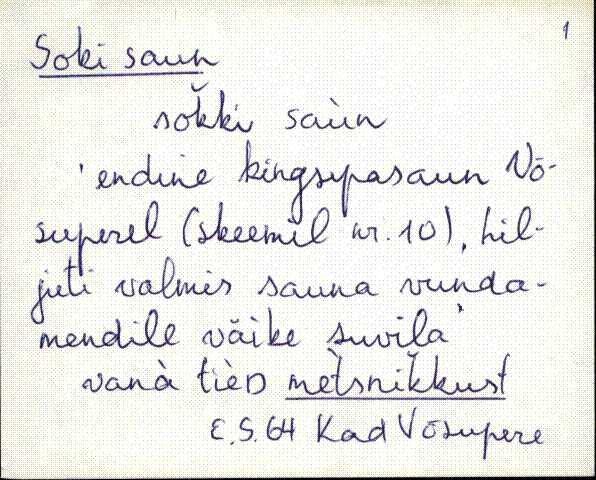 1
Soki saun
sok̆ki saùn
'endine kingsepasaun Võ-
superel (skeemil nr. 10), hil-
juti valmis sauna vunda-
mendile väike suvila'
vanà tièD mètsnik̆kust
E.S. 64 Kad Võsupere